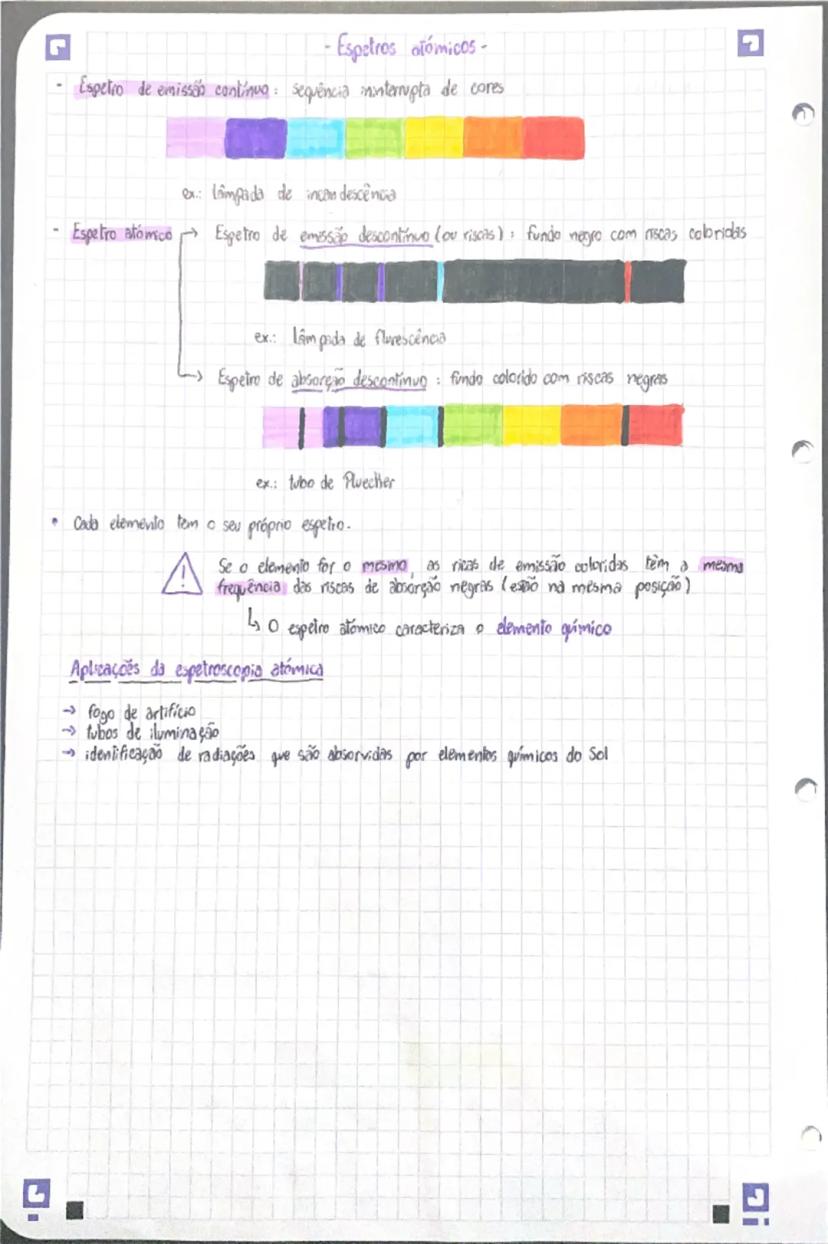 - Espetros atómicos -
- Espetro de emissão contínuo: sequência ininterrupta de cores
ex.: lâmpada de incandescência
- Espetro atómico → Espetro de emissão descontínuo (ou riscas): fundo negro com riscas coloridas
ex.: lâmpada de flurescência
→ Espetro de absorção descontínuo: fundo colorido com riscas negras
ex.: tubo de Pluecher
• Cada elemento tem o seu próprio espetro.
Se o elemento for o mesmo, as ricas de emissão coloridas têm a mesma
frequência das riscas de absorção negras (estão na mesma posição)
↳ O espetro atómico caracteriza o elemento químico
Aplicações da espetroscopia atómica
→ fogo de artifício
→ tubos de iluminação
→ identificação de radiações que são absorvidas por elementos químicos do Sol